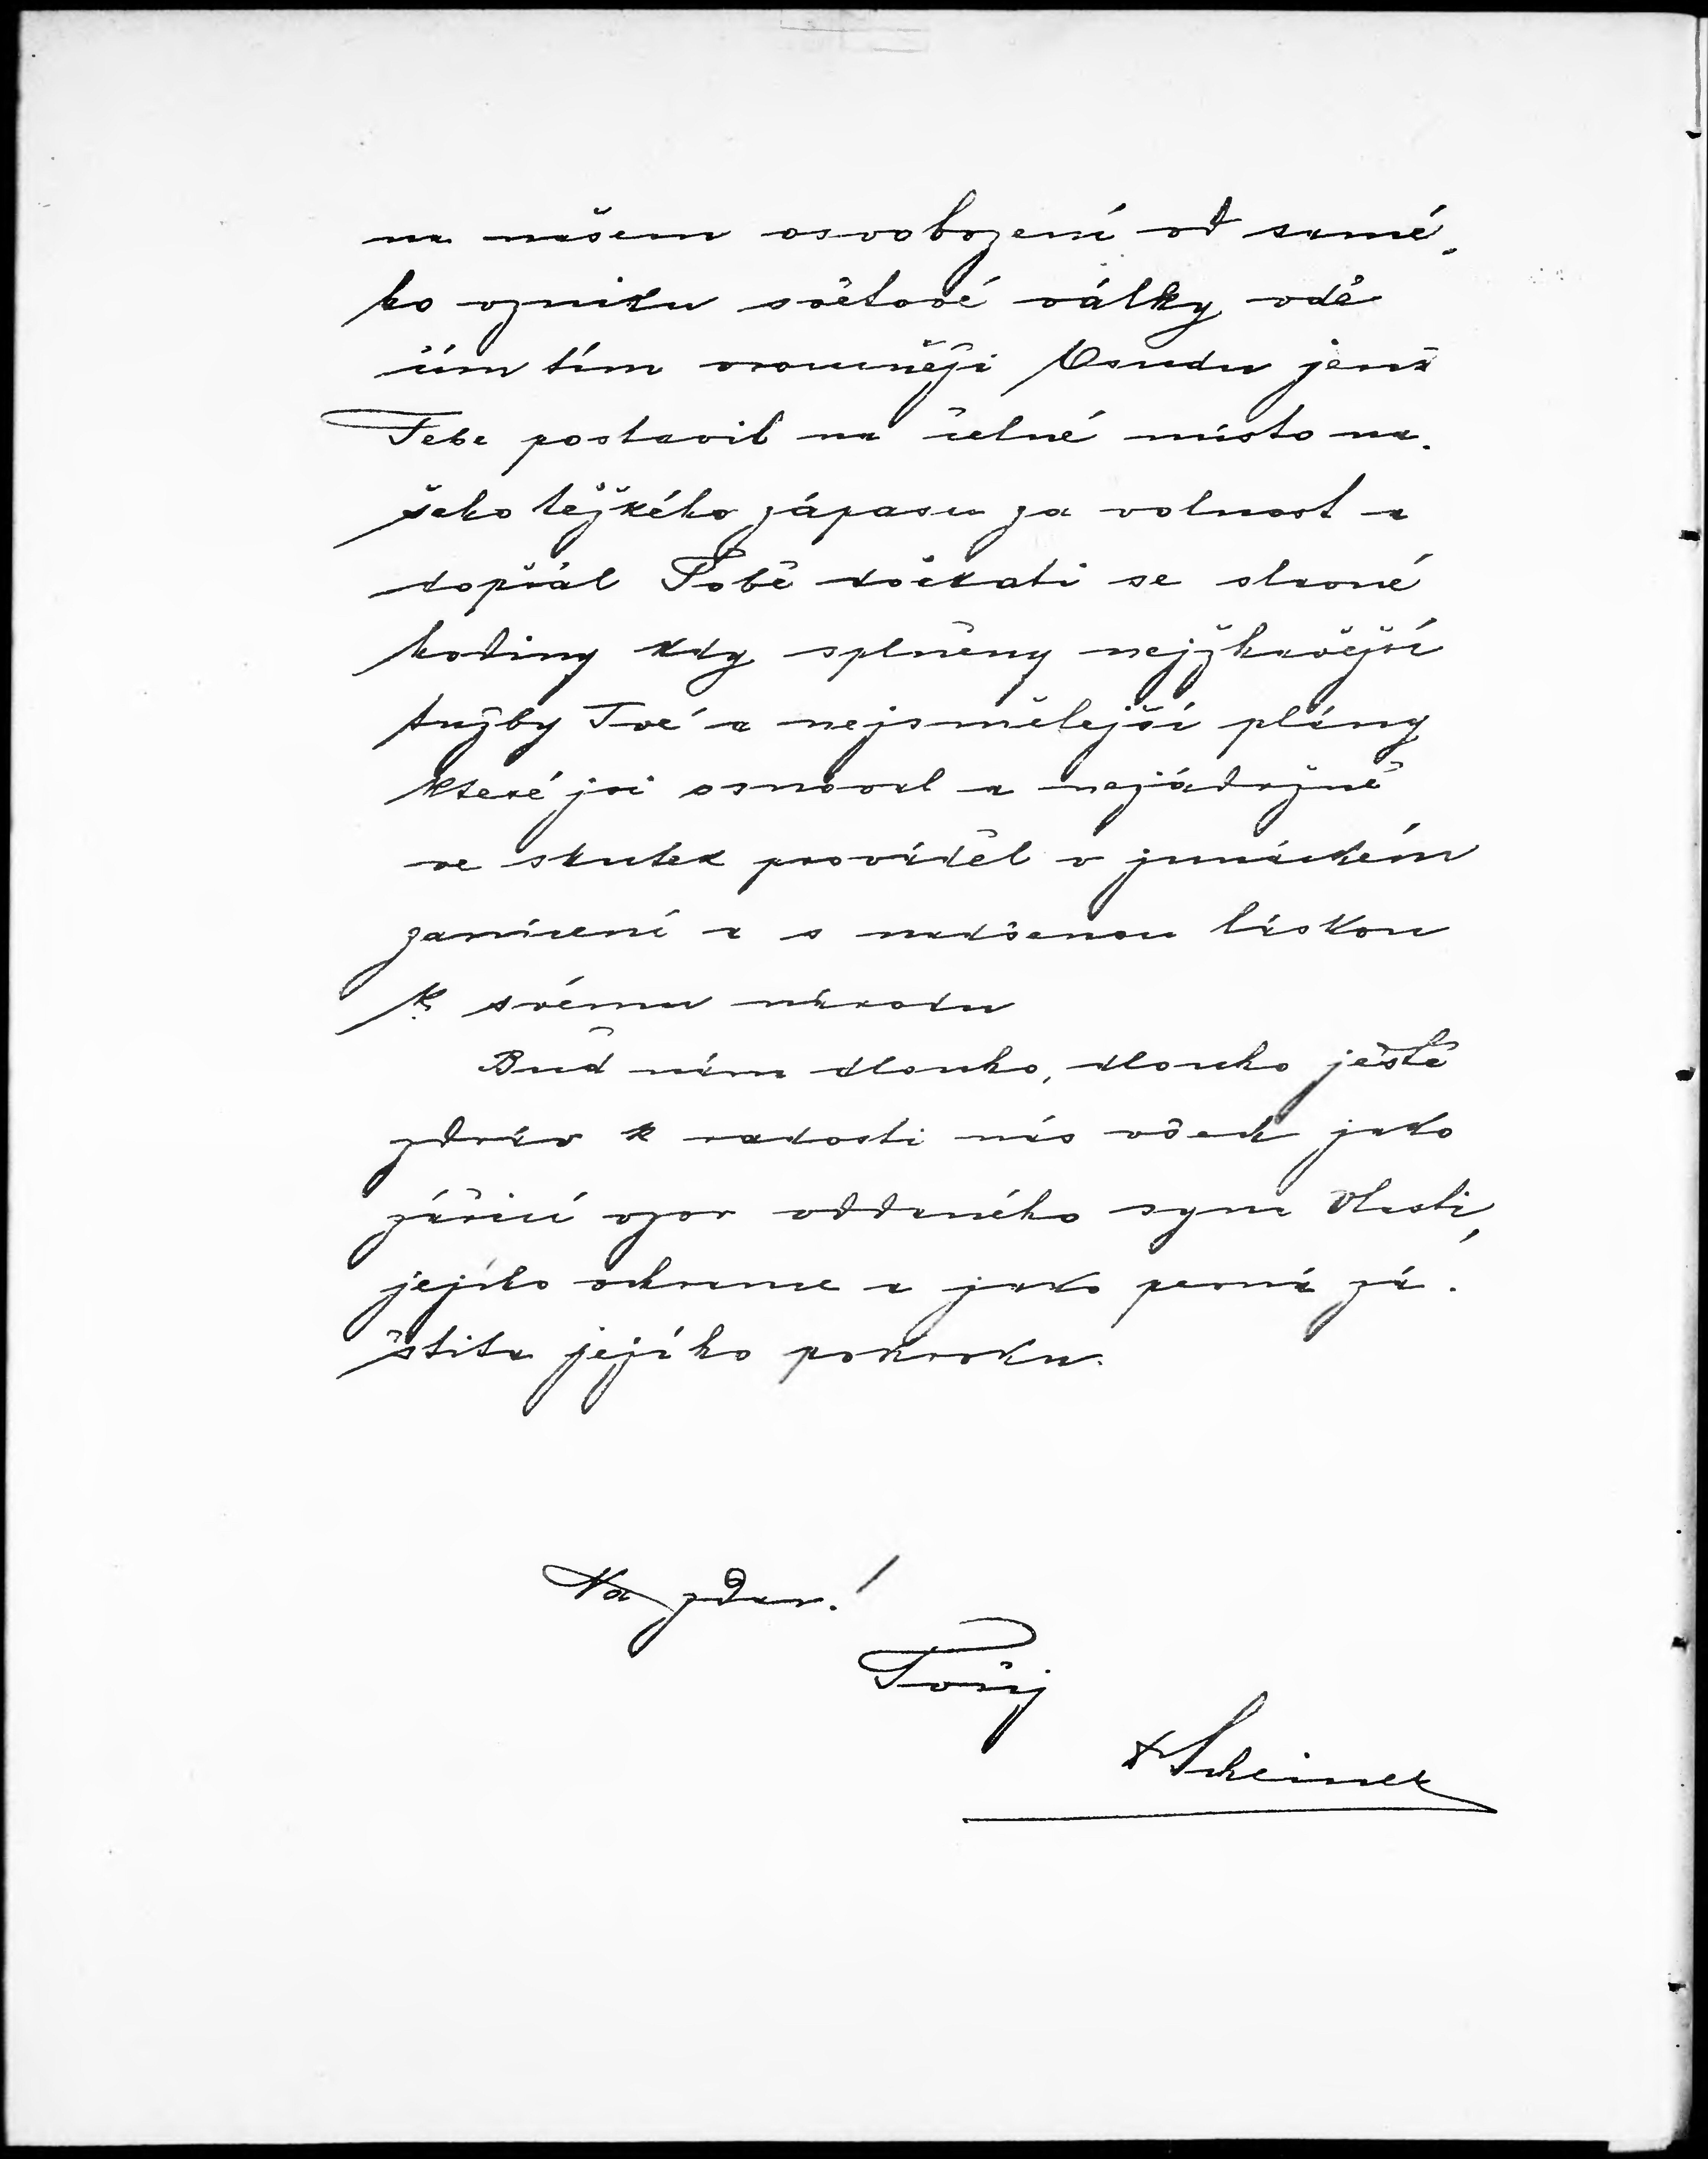 na našem osvobození od samé-
ho vzniku světové války vdě
čím tím vroucněji Osudu jenž
Tebe postavil na čelné místo na-
šeho těžkého zápasu za volnost a
dopřál Tobě dočkati se slavné
hodiny kdy splněny nejžhavější
tužby Tvé a nejsmělejší plány
které jsi osnoval a nezádržně
ve skutek prováděl v junáckém
zanícení a s nadšenou láskou
k svému národu
Buď nám dlouho, dlouho ještě
zdráv k radosti nás všech jako
zářící vzor oddaného syna Vlasti,
jejího ochrance a jako pevná zá-
štita jejího pokroku.
Na zdar!
Tvůj
Dr Scheiner